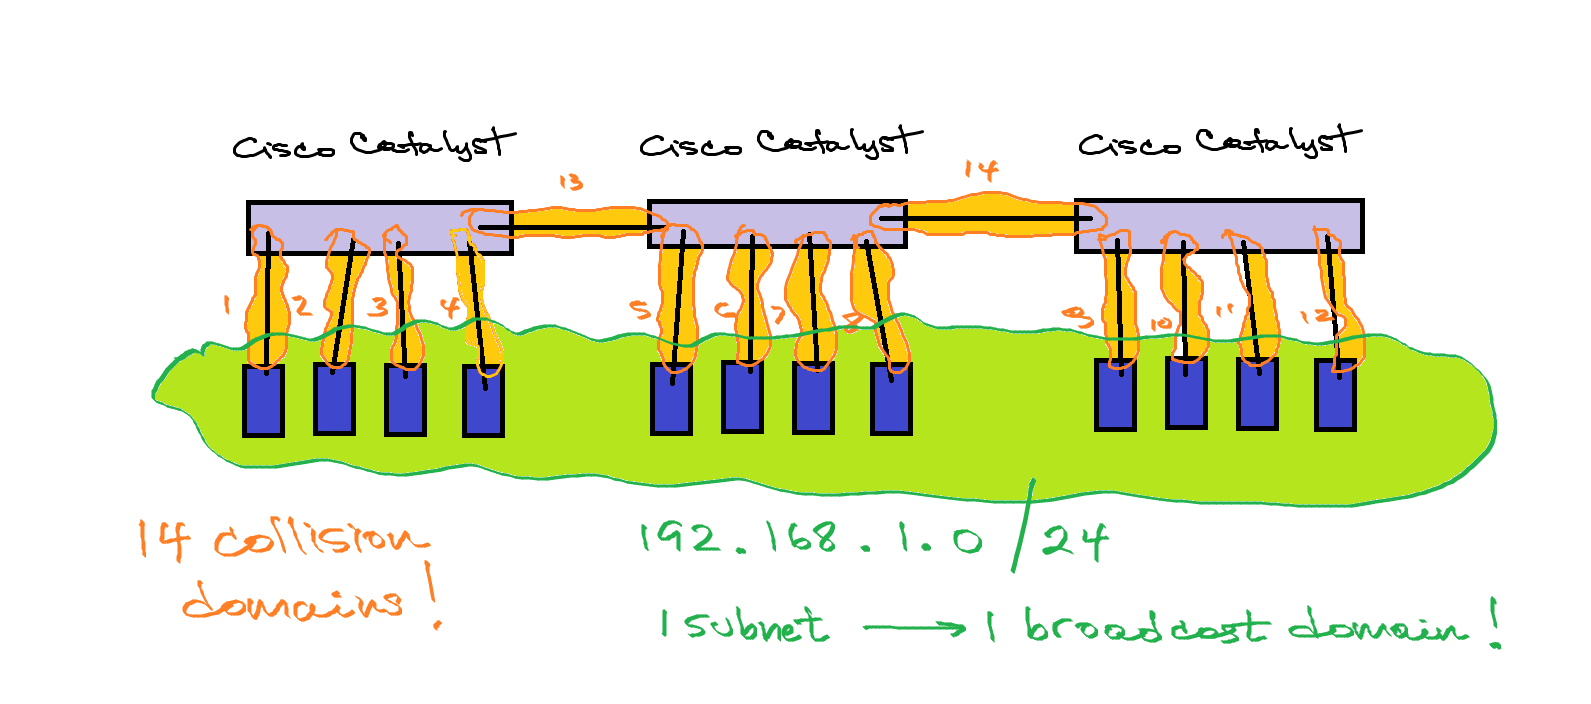 Cisco Catalyst
Cisco Catalyst
Cisco Catalyst
13
14
1
2
3
4
5
6
7
8
9
10
11
12
14 collision
domains!
192.168.1.0/24
1 subnet → 1 broadcast domain!